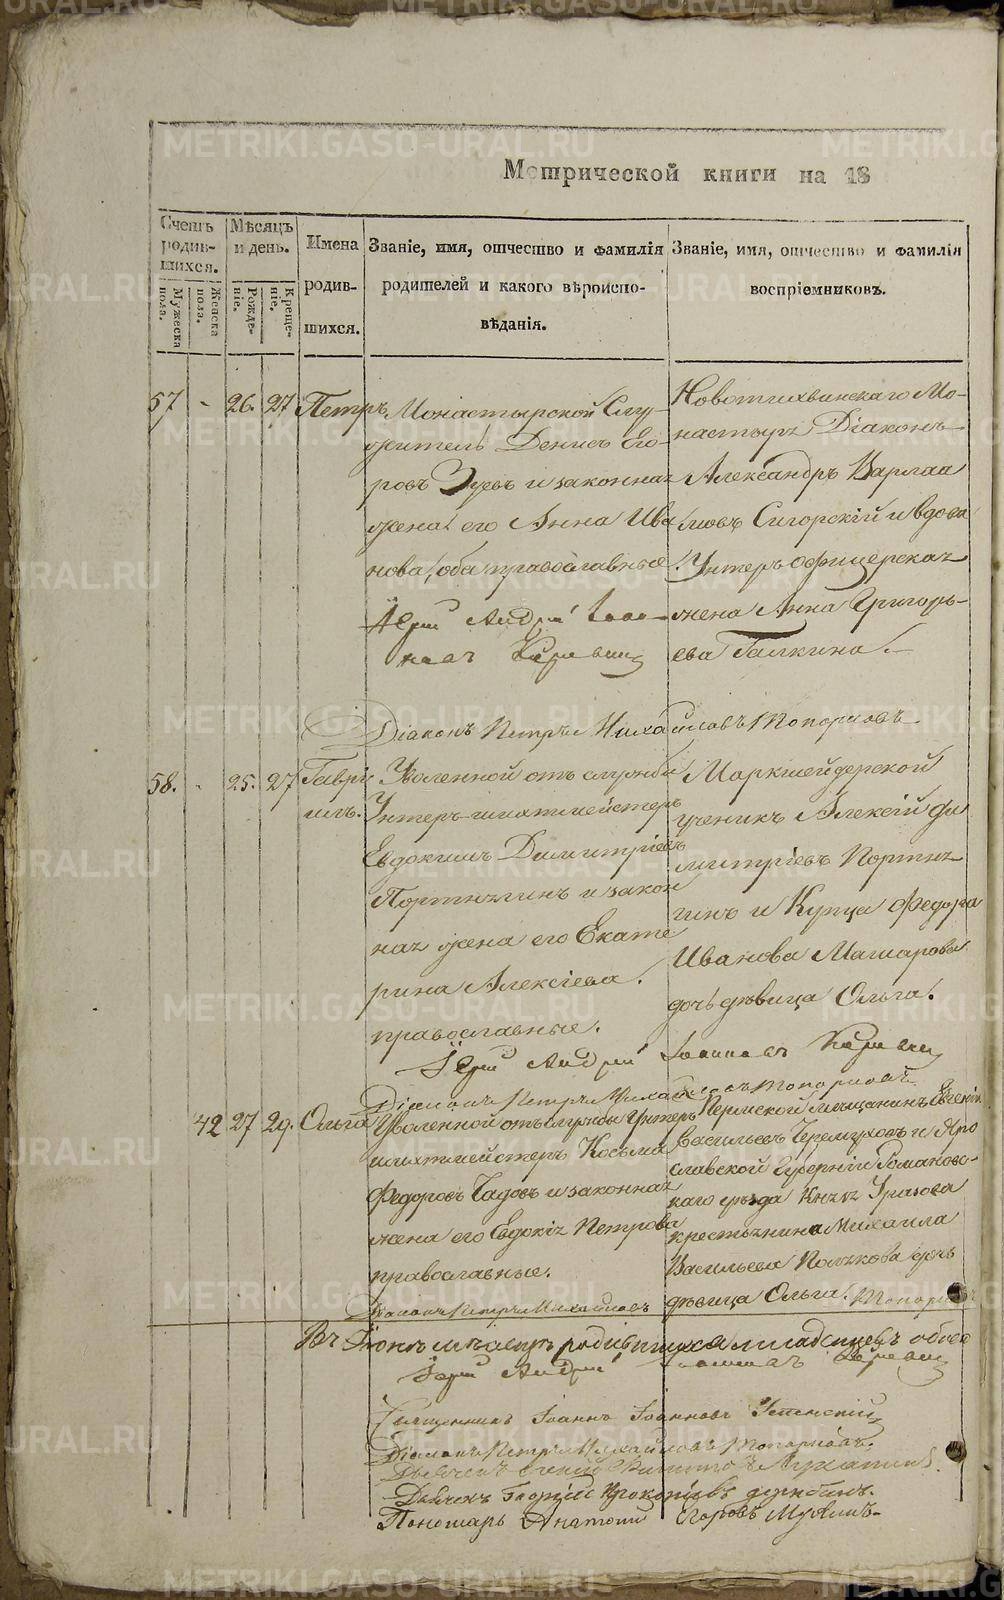 Метрической книги на 18
Счетъ родившихся.
Мужеска пола.
Женска пола.
Мѣсяцъ и день.
Рожденіе.
Крещеніе.
Имена родившихся.
Званіе, имя, отчество и фамилія
родителей и какого вѣроиспо-
вѣданія.
Званіе, имя, отчество и фамилія
воспріемниковъ.
57 - 26. 27 Петръ
Монастырской Слу-
житель Денисъ Его-
ровъ Зуевъ и законная
жена его Анна Ива
нова, оба православные
Іерей Андрей Іоан-
новъ
Новотихвинскаго Мо-
настыря Діаконъ
Александръ Варлаа
мовъ Сигорскій и вдова
Унтеръ офицерская
жена Анна Григорь-
ева Галкина.
Діаконъ Петръ Михайловъ Топорковъ
58. - 25. 27 Гаврі
илъ.
Уволенной отъ службы
Унтеръ-шихтмейстеръ
Евдокимъ Димитріевъ
Портнягинъ и закон
ная жена его Екате
рина Алексіева.
православные.
Маркшейдерской
ученикъ Алексій Ди
митріевъ Портня
гинъ и Купца Федора
Иванова Машарова
дочь дѣвица Ольга.
Іерей Андрей Іоанновъ
Діаконъ Петръ Михайловъ Топорковъ
42 27 29. Ольга
Уволенной отъ службы Унтеръ
шихтмейстеръ Косьма
Федоровъ Гадовъ и законная
жена его Евдокія Петрова
православные.
Пермской мѣщанинъ Евгеній
Васильевъ Черемуховъ и Яро
славской Губерніи Романовс-
каго уѣзда Князя Урусова
крестьянина Михаила
Васильева Полякова дочь
дѣвица Ольга.
Діаконъ Петръ Михайловъ Топорковъ
Въ Іюнѣ мѣсяцѣ родившихся младенцевъ обоего
Іерей Андрей Іоанновъ
Священникъ Іоаннъ Іоанновъ Успенскій
Діаконъ Петръ Михайловъ Топорковъ.
Дьячекъ Георгій Прокопіевъ Дерябинъ.
Пономарь Анатолій Егоровъ